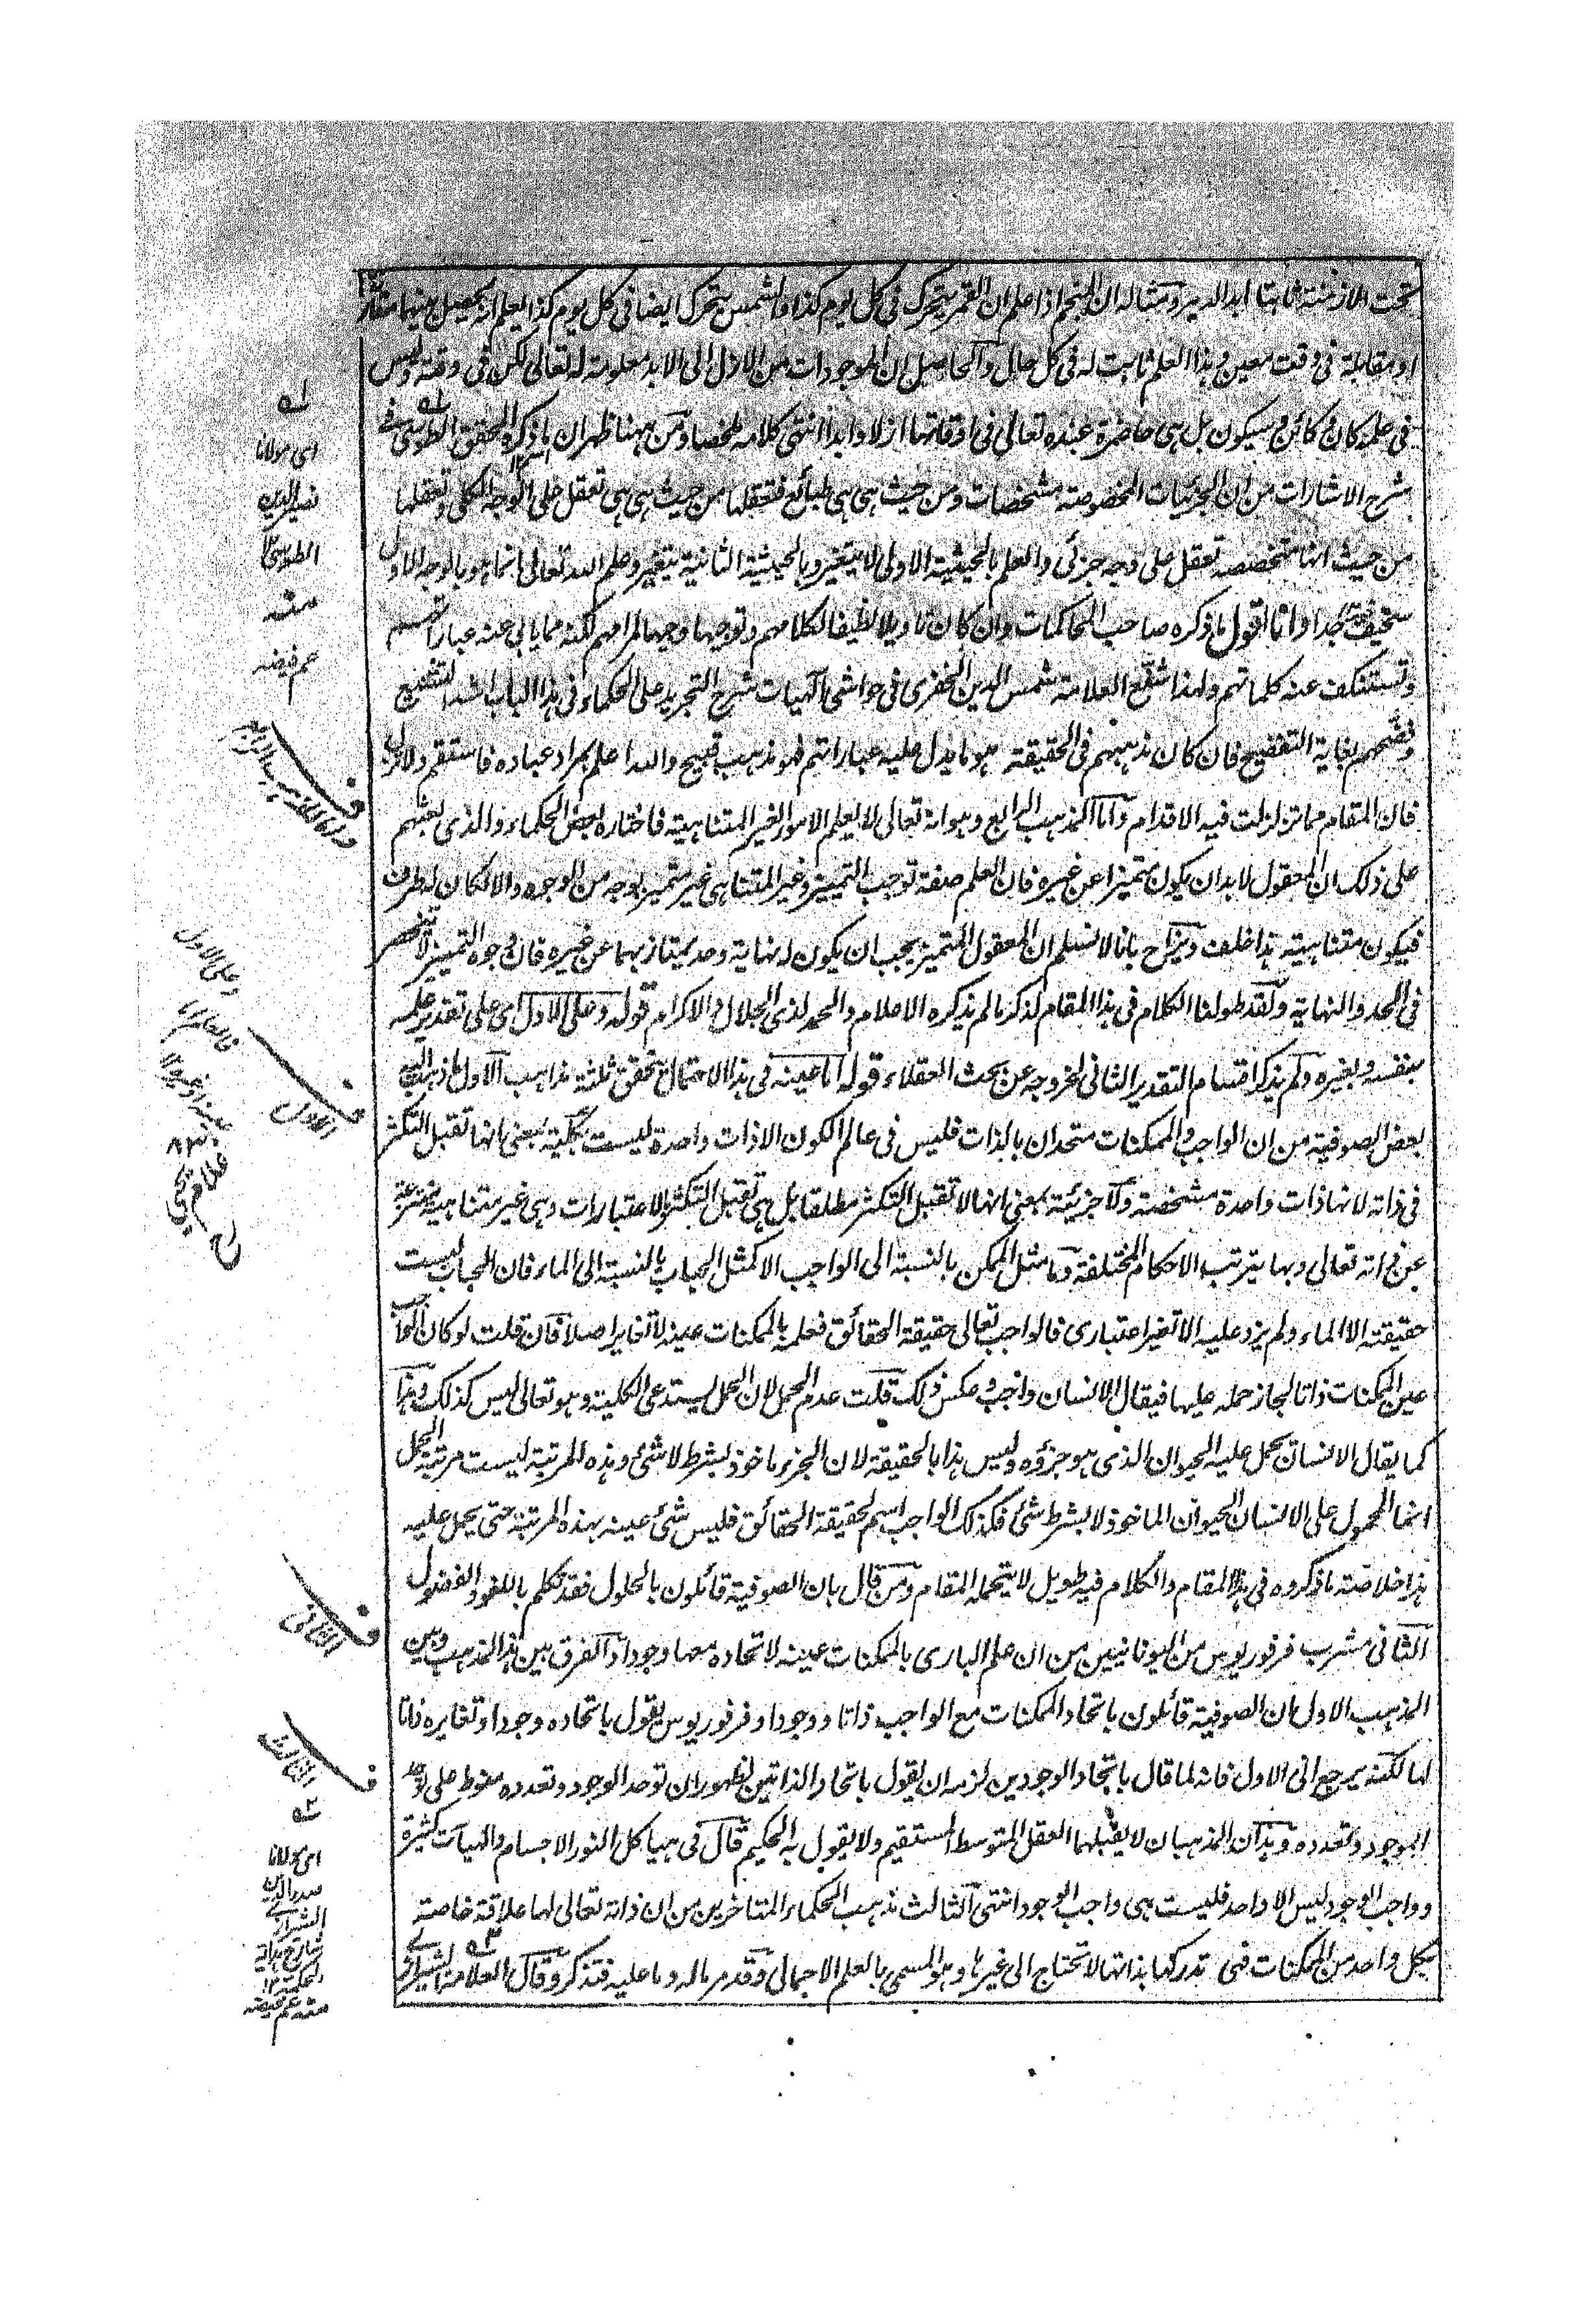 تحت الازمنة ثابتا ابد الدهر ومثاله ان المنجم اذا علم ان القمر يتحرك فى كل يوم كذا والشمس يتحرك ايضا فى كل يوم كذا يعلم انه يحصل بينهما مقارنة
او مقابلة فى وقت معين وهذا العلم ثابت له فى كل حال والحاصل ان الموجودات من الازل الى الابد معلومة له تعالى لكن فى وقته وليس
فى علمه كان وكائن وسيكون بل هى حاضرة عنده تعالى فى اوقاتها ازلا وابدا انتهى كلامه ملخصا ومن ههنا ظهر ان ما ذكره المحقق الطوسى فى
شرح الاشارات من ان الجزئيات المخصوصة مشخصات ومن حيث هى هى طبائع فتعقلها من حيث هى هى تعقل على الوجه الكلى وتعقلها
من حيث انها متخصصة تعقل على وجه جزئى والعلم بالحيثية الاولى لا يتغير وبالحيثية الثانية يتغير وعلم الله تعالى انما هو بالوجه الاول
سخيف جدا وانا اقول ما ذكره صاحب المحاكمات وان كان تاويلا لطيفا لكلامهم وتوجيها وجيها لمرامهم لكنه مما يابى عنه عباراتهم
وتستنكف عنه كلماتهم ولهذا شنع العلامة شمس الدين الخفرى فى حواشى الهيات شرح التجريد على الحكماء فى هذا الباب اشد التشنيع
وفضحهم بغاية التفضيح فان كان مذهبهم فى الحقيقة هو ما يدل عليه عباراتهم فهو مذهب قبيح والله اعلم بمراد عباده فاستقم ولا تزل
فان المقام مما تزلزلت فيه الاقدام واما المذهب الرابع وهو انه تعالى لا يعلم الامور الغير المتناهية فاختاره بعض الحكماء والذى بعثهم
على ذلك ان المعقول لا بد ان يكون متميزا عن غيره فان العلم صفة توجب التمييز وغير المتناهى غير متميز بوجه من الوجوه والا لكان له طرف
فيكون متناهيته هذا خلف ويزاح بانا لا نسلم ان المعقول المتميز يجب ان يكون له نهاية وحد يمتاز بهما عن غيره فان وجوه التميز لا تنحصر
فى الحد والنهاية ولقد طولنا الكلام فى هذا المقام لذكر ما لم يذكره الاعلام والحمد لذى الجلال والاكرام قوله وعلى الاول اى على تقدير علمه
بنفسه وبغيره ولم يذكر اقسام التقدير الثانى لخروجه عن بحث العقلاء قوله اما عينه فى هذا الاحتمال تحقق ثلثة مذاهب الاول ما ذهب اليه
بعض الصوفية من ان الواجب والممكنات متحدان بالذات فليس فى عالم الكون الا ذات واحدة ليست بكلية بمعنى انها تقبل التكثر
فى ذاته لانها ذات واحدة مشخصة ولا جزئية بمعنى انها لا تقبل التكثر مطلقا بل هى تقبل التكثر بالاعتبارات وهى غير متناهية منتزعة
عن ذاته تعالى وبها يترتب الاحكام المختلفة وما مثل الممكن بالنسبة الى الواجب الا كمثل الحباب بالنسبة الى الماء فان الحباب ليست
حقيقته الا الماء ولم يزد عليه الا تغير اعتبارى فالواجب تعالى حقيقة الحقائق فعلمه بالممكنات عينه لا تغاير اصلا فان قلت لو كان الواجب
عين الممكنات ذاتا لجاز حمله عليها فيقال الانسان واجب وعكس ذلك قلت عدم الحمل لان الحمل يستدعى الكلية وهو تعالى ليس كذلك وهذا
كما يقال الانسان يحمل عليه الحيوان الذى هو جزؤه وليس هذا بالحقيقة لان الجزء ماخوذ بشرط لا شئ وهذه المرتبة ليست مرتبة الحمل
انما المحمول على الانسان الحيوان الماخوذ لا بشرط شئ فكذلك الواجب اسم لحقيقة الحقائق فليس شئ عينه بهذه المرتبة حتى يحمل عليه
هذا خلاصة ما ذكروه فى هذا المقام والكلام فيه طويل لا يتحمله المقام ومن قال بان الصوفية قائلون بالحلول فقد تكلم باللغو والفضول
الثانى مشرب فرفوريوس من اليونانيين من ان علم البارى بالممكنات عينه لاتحاده معها وجودا والفرق بين هذا المذهب وبين
المذهب الاول ان الصوفية قائلون باتحاد الممكنات مع الواجب ذاتا ووجودا وفرفوريوس يقول باتحاده وجودا وتغايره ذاتا
لها لكنه يرجع الى الاول فانه لما قال باتحاد الوجودين لزمه ان يقول باتحاد الذاتين لظهور ان توحد الوجود وتعدده منوط على توحد
الموجود وتعدده وهذان المذهبان لا يقبلهما العقل المتوسط المستقيم ولا يقول به الحكيم قال فى هياكل النور الاجسام والهيآت كثيرة
وواجب الوجود ليس الا واحد فليست هى واجب الوجود انتهى الثالث مذهب الحكماء المتاخرين من ان ذاته تعالى لها علاقة خاصة
بكل واحد من الممكنات فهى تدركها بذاتها لا تحتاج الى غيرها وهو المسمى بالعلم الاجمالى وقد مر ماله وما عليه فتذكر وقال العلامة الشيرازى
له
اى مولانا
نصير الدين
الطوسى
منه
عم فيضه
وعلى الاول
فالعلم اما
عينه او غيره
غلام يحيى
الاول
الثانى
الثالث
اى مولانا
صدر الدين
الشيرازى
شارح هداية
الحكمة ١٢
منه عم فيضه